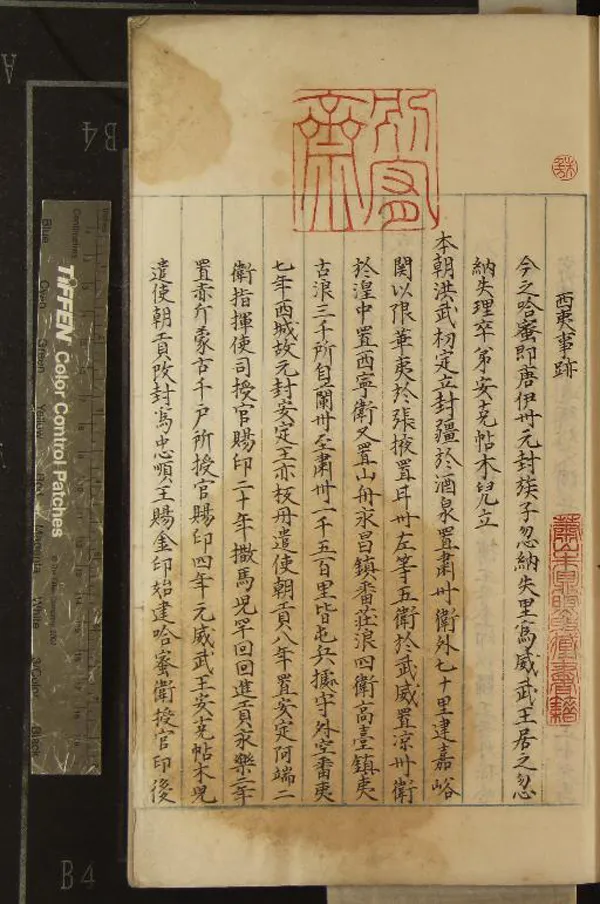 別宥齋
西夷事跡
蕭山朱鼎煦收藏書籍
今之哈蜜即唐伊州元封族子忽納失里爲威武王居之忽
納失理卒弟安克帖木兒立
本朝洪武初定立封疆於酒泉置肅州衛外七十里建嘉峪
関以限華夷於張掖置甘州左等五衛於武威置凉州衛
於湟中置西寧衛又置山丹永昌鎮番莊浪四衛高臺鎮夷
古浪三千所自蘭州至肅州一千五百里皆屯兵據守外空番夷
七年西城故元封安定王亦板丹遣使朝貢八年置安定阿端二
衛指揮使司授官賜印二十年撒馬兒罕回回進貢永樂二年
置赤斤蒙古千户所授官賜印四年元威武王安克帖木兒
遣使朝貢改封爲忠順王賜金印始建哈蜜衛授官印後
TIFFEN Color Control Patches
Blue
Cyan
Green
Yellow
Red
Magenta
White
3/Color
Black
Centimetres
B4
B4
A